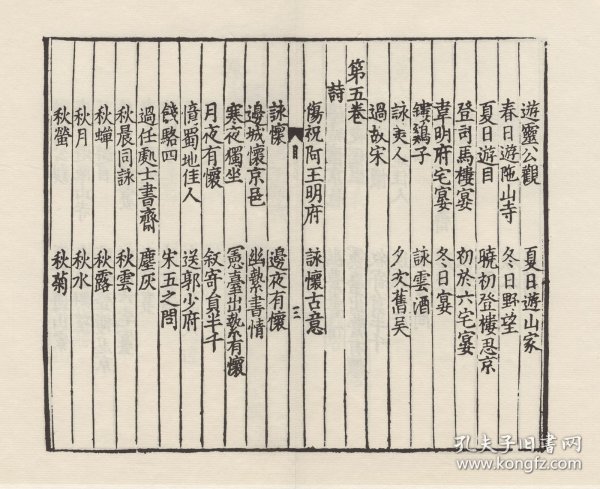 遊靈公觀 夏日遊山家
春日遊陁山寺 冬日野望
夏日遊目 曉初登樓思京
登司馬樓宴 初於六宅宴
韋明府宅宴 冬日宴
鏤雞子 詠雲酒
詠美人 夕次舊吴
過故宋
第五卷
詩
傷祝阿王明府 詠懷古意
目 三
詠懷 邊夜有懷
邊城懷京邑 幽縶書情
寒夜獨坐 憲臺出縶有懷
月夜有懷 叙寄員半千
憶蜀地佳人 送郭少府
餞駱四 宋五之問
過任處士書齋 塵灰
秋晨同詠 秋雲
秋蟬 秋露
秋月 秋水
秋螢 秋菊
孔夫子旧书网
www.kongfz.com